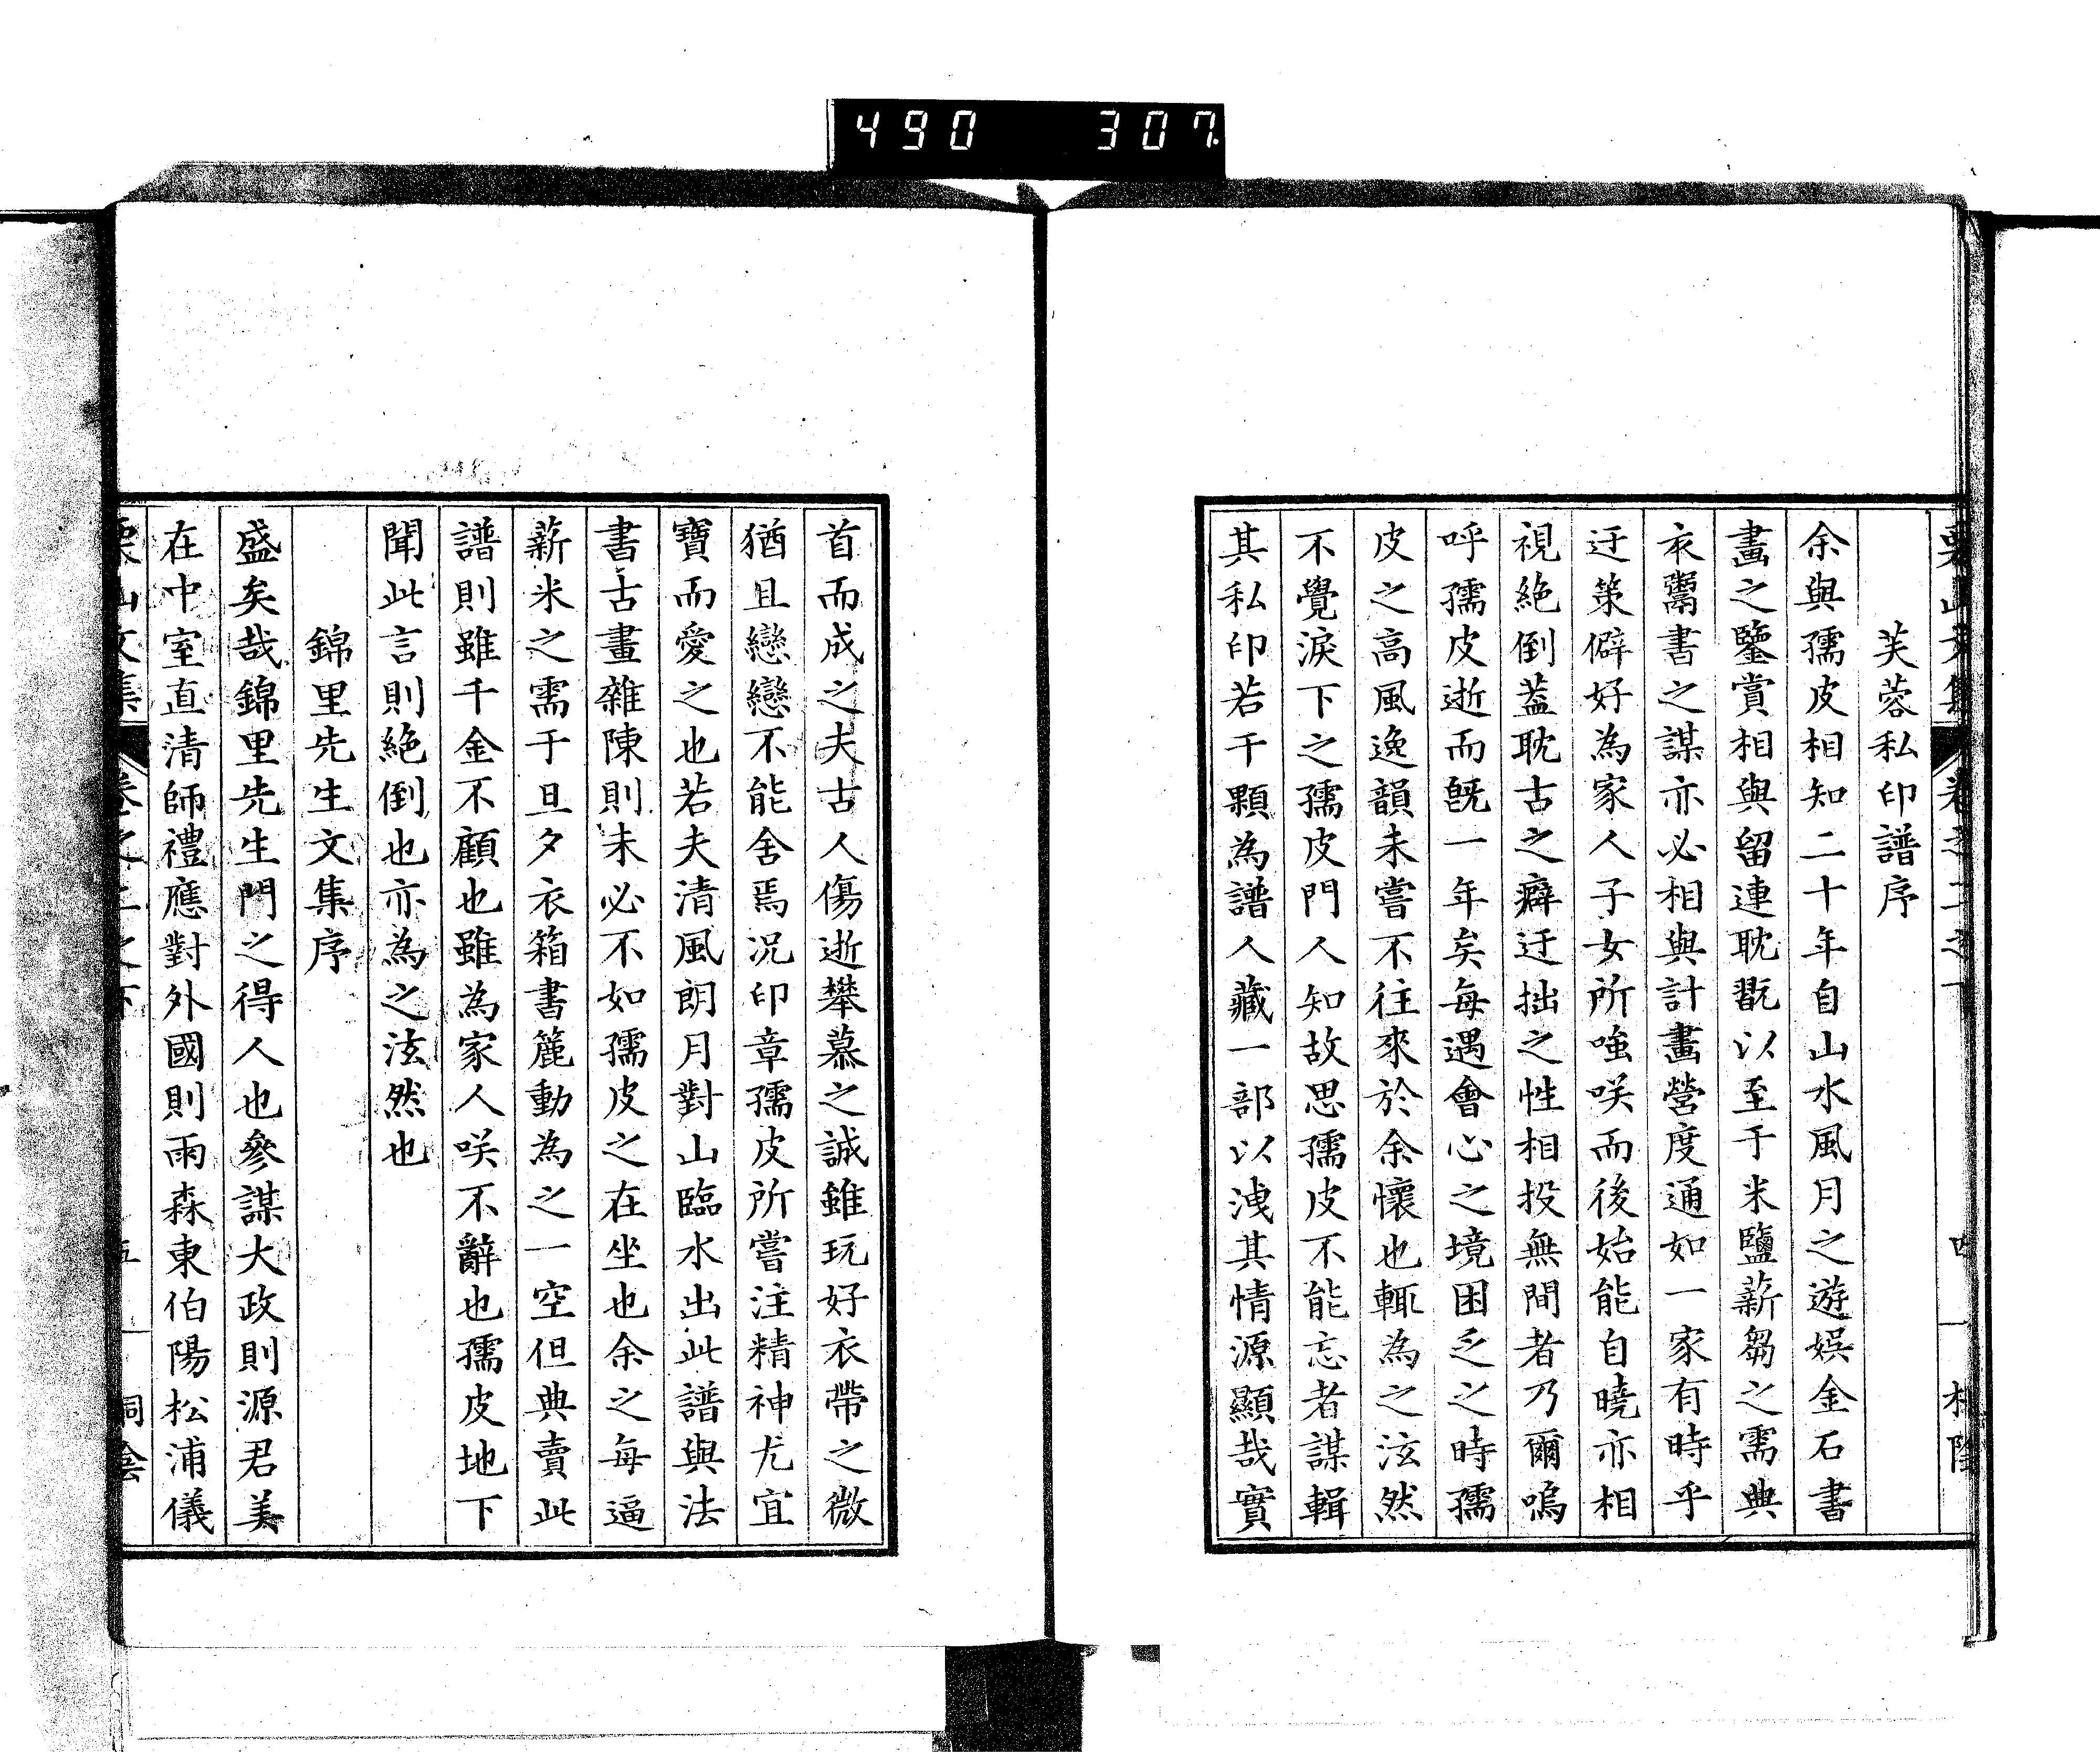 490 307
芙蓉私印譜序
余與孺皮相知二十年自山水風月之遊娯金石書
畫之鑒賞相與留連耽翫以至于米鹽薪芻之需典
衣鬻書之謀亦必相與計畫營度通如一家有時乎
迂策僻好為家人子女所嗤咲而後始能自曉亦相
視絶倒蓋耽古之癖迂拙之性相投無間者乃爾嗚
呼孺皮逝而旣一年矣每遇會心之境困乏之時孺
皮之高風逸韻未嘗不往來於余懷也輒為之泫然
不覺淚下之孺皮門人知故思孺皮不能忘者謀輯
其私印若干顆為譜人藏一部以洩其情源顯哉實
首而成之夫古人傷逝攀慕之誠雖玩好衣帶之微
猶且戀戀不能舍焉况印章孺皮所嘗注精神尤宜
寶而愛之也若夫清風朗月對山臨水出此譜與法
書古畫雜陳則未必不如孺皮之在坐也余之每逼
薪米之需于旦夕衣箱書簏動為之一空但典賣此
譜則雖千金不顧也雖為家人咲不辭也孺皮地下
聞此言則絶倒也亦為之泫然也
錦里先生文集序
盛矣哉錦里先生門之得人也參謀大政則源君美
在中室直清師禮應對外國則雨森東伯陽松浦儀